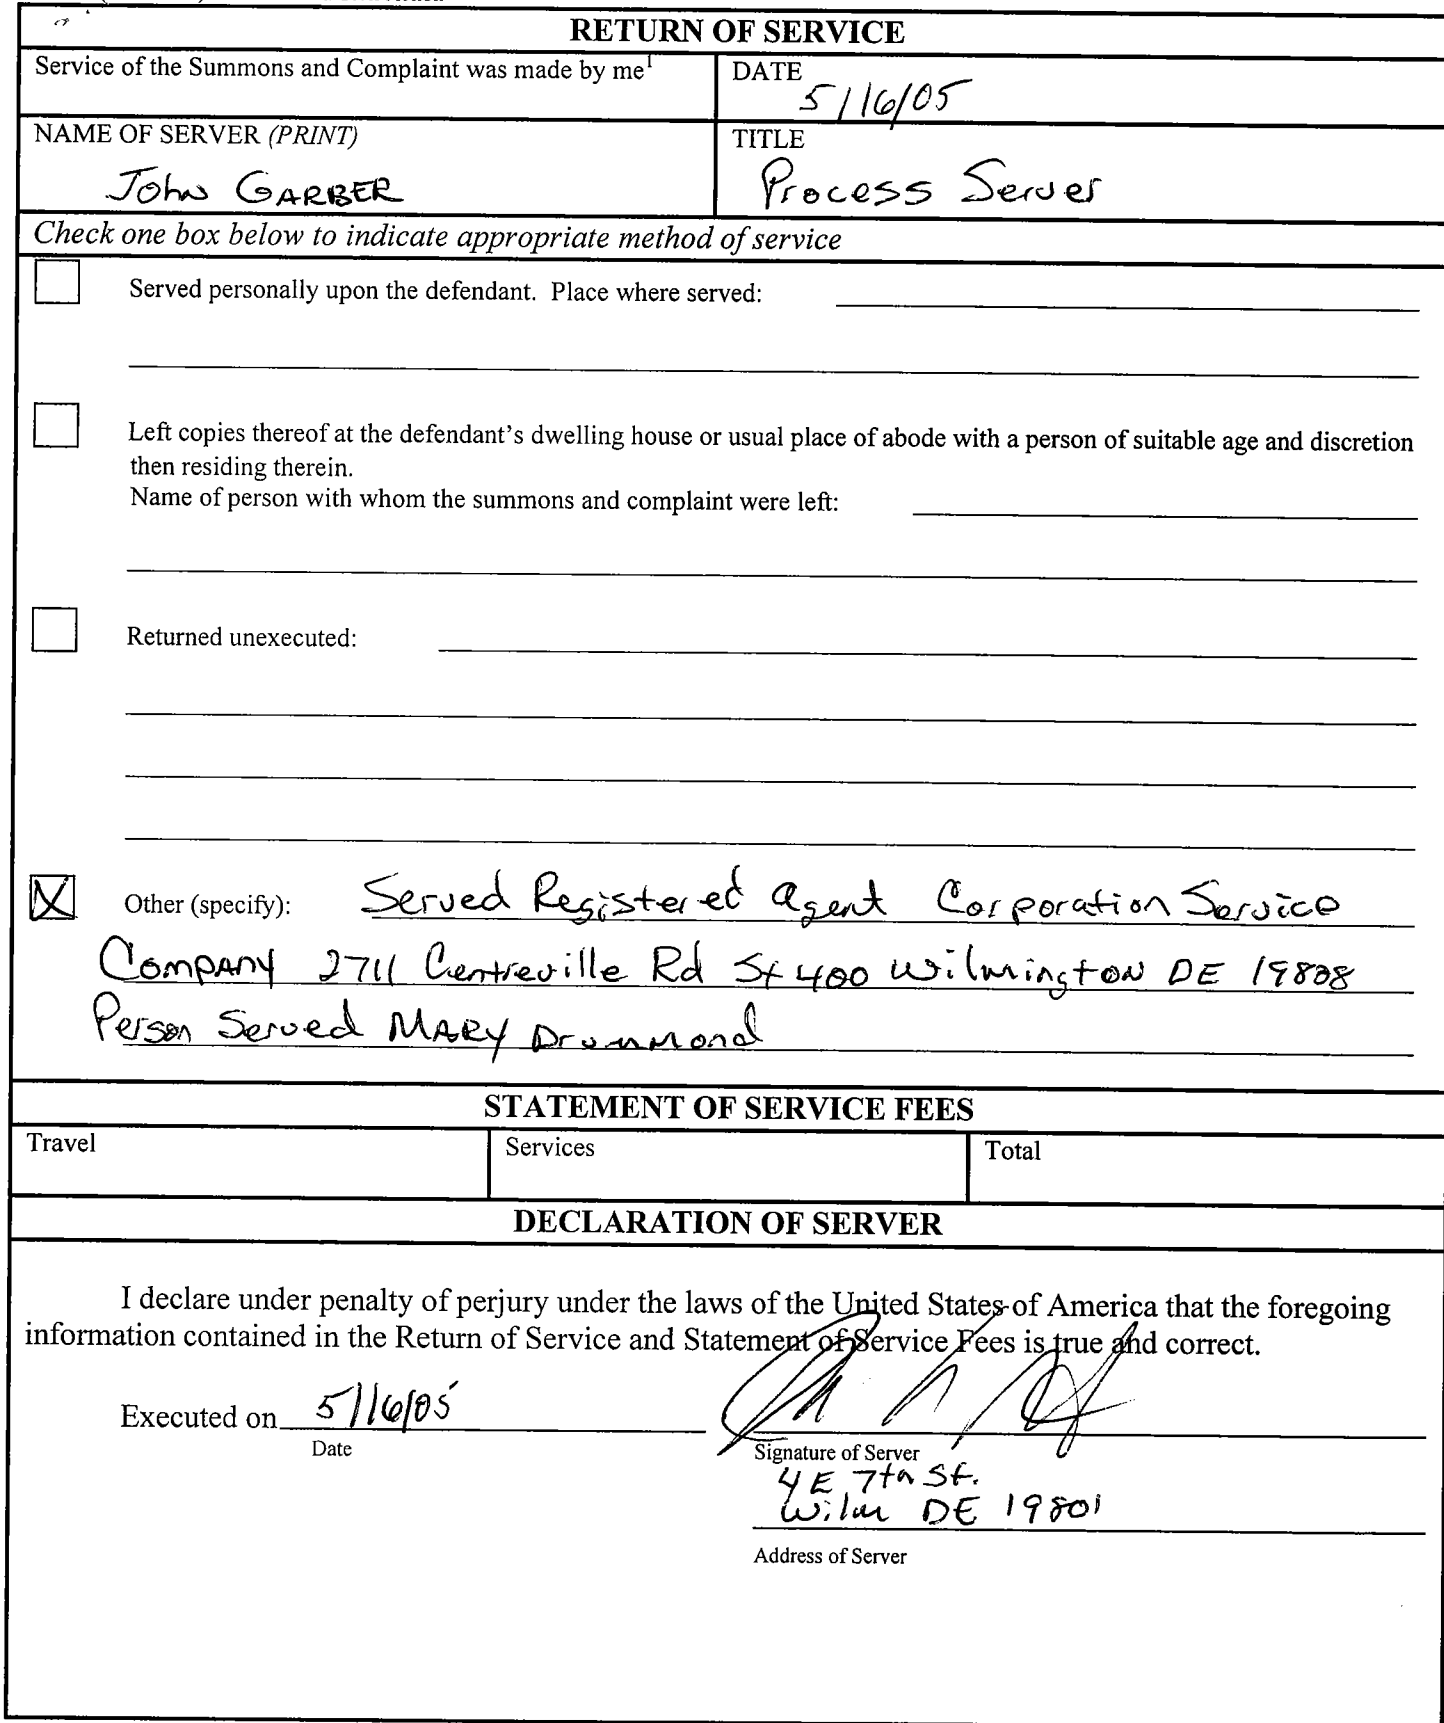 RETURN OF SERVICE
Service of the Summons and Complaint was made by me1
DATE
5/16/05
NAME OF SERVER (PRINT)
John GARBER
TITLE
Process Server
Check one box below to indicate appropriate method of service
Served personally upon the defendant. Place where served:
Left copies thereof at the defendant's dwelling house or usual place of abode with a person of suitable age and discretion
then residing therein.
Name of person with whom the summons and complaint were left:
Returned unexecuted:
X Other (specify): Served Registered agent Corporation Service
Company 2711 Centreville Rd St 400 Wilmington DE 19808
Person Served MARY Drummond
STATEMENT OF SERVICE FEES
Travel
Services
Total
DECLARATION OF SERVER
I declare under penalty of perjury under the laws of the United States of America that the foregoing
information contained in the Return of Service and Statement of Service Fees is true and correct.
Executed on 5/16/05
Date
Signature of Server
4 E 7th St.
Wilm DE 19801
Address of Server